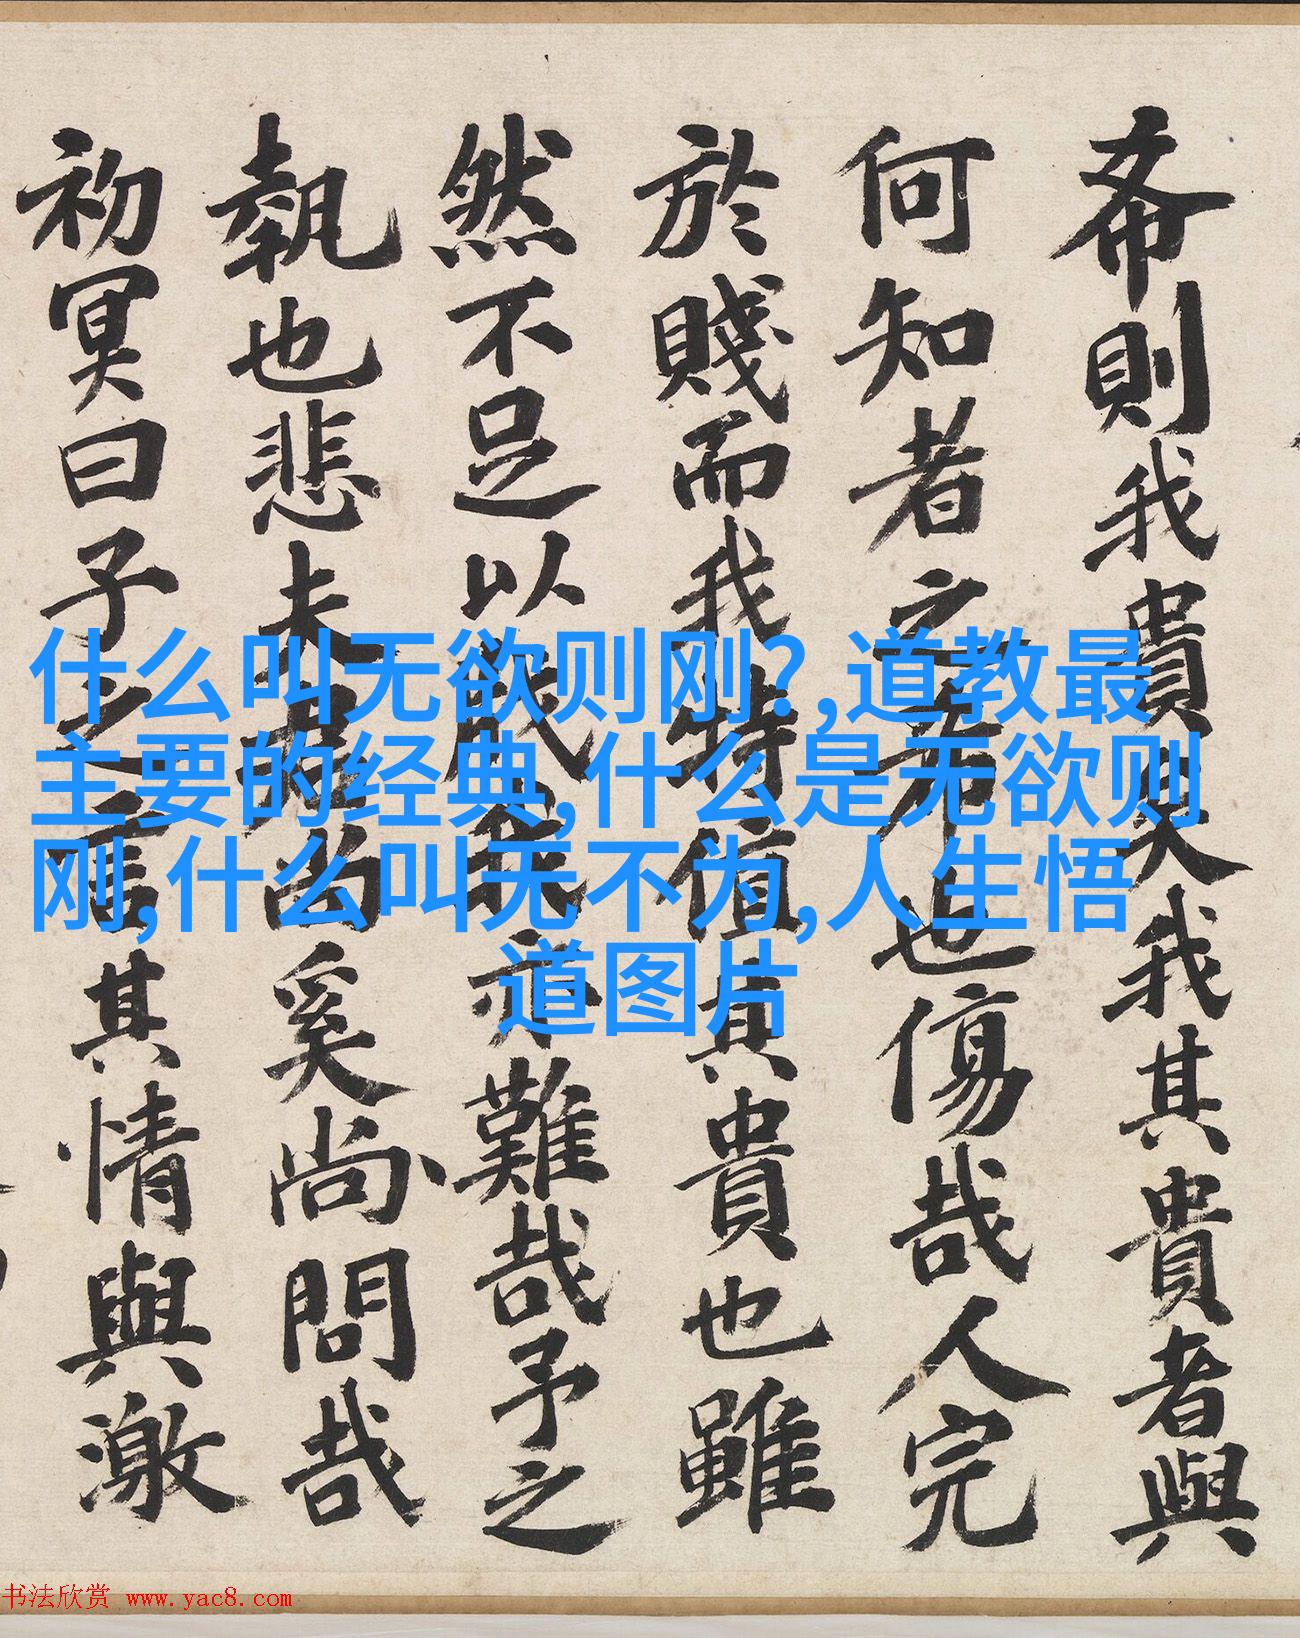 希則我貴矣我其貴者與
何知者之也傷哉人完
於賤而我特值其貴也雖
然不足以亦難哉予之
執也悲夫尚奚尚問哉
初冥曰子之言其情與激
什么叫无欲则刚?,道教最
主要的经典,什么是无欲则
刚,什么叫无不为,人生悟
道图片
书法欣赏 www.yac8.com